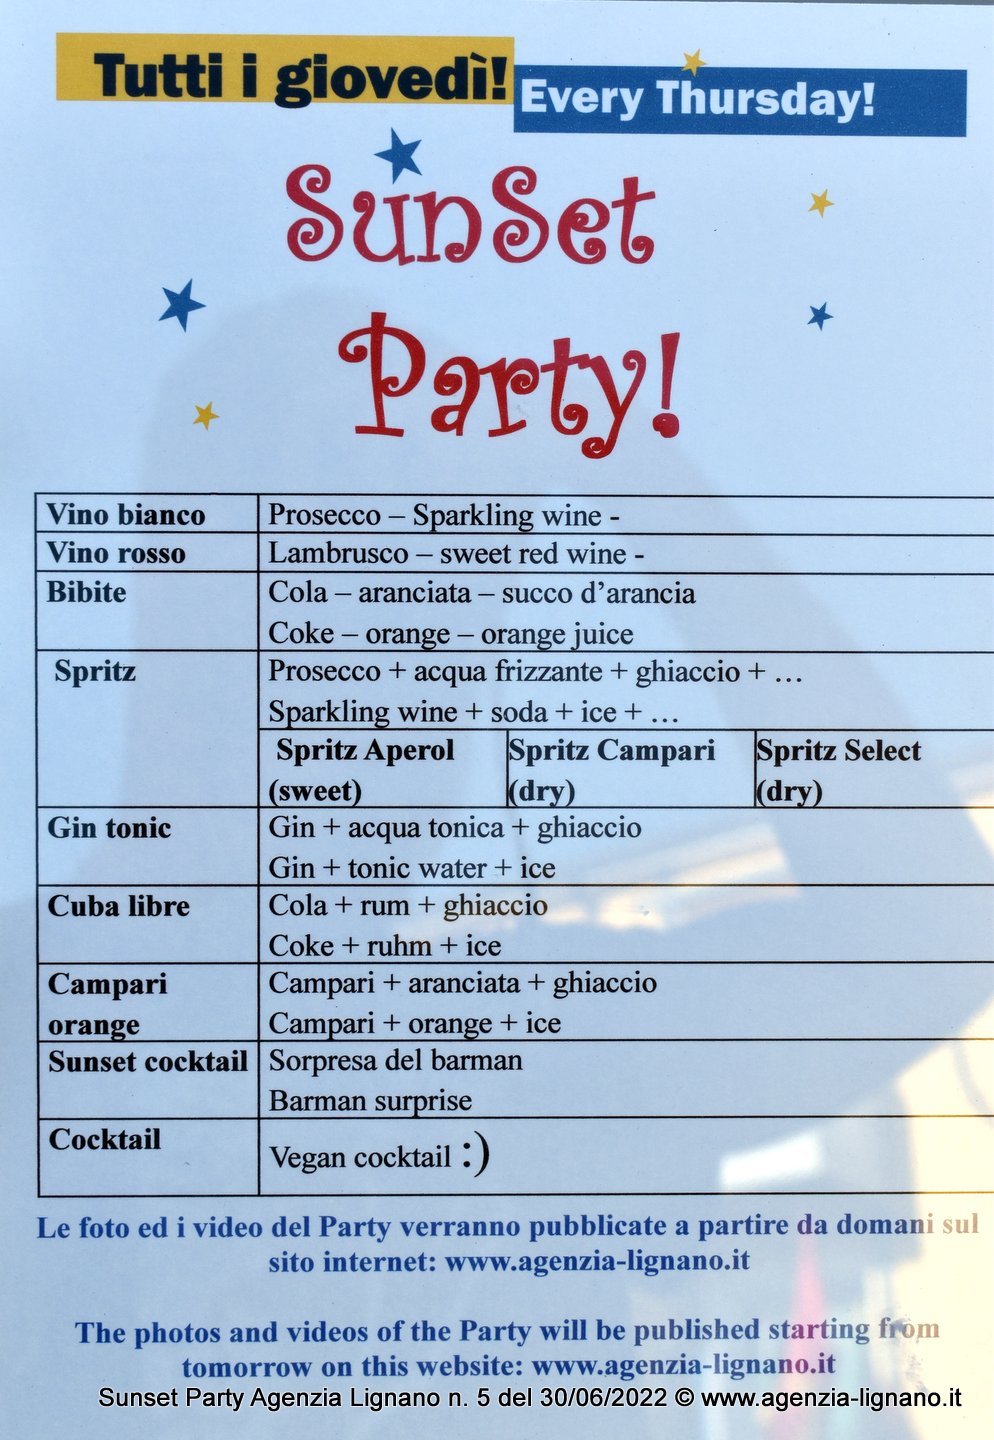 Tutti i giovedì!
Every Thursday!
SunSet
Party!
Vino bianco Prosecco – Sparkling wine -
Vino rosso Lambrusco – sweet red wine -
Bibite Cola – aranciata – succo d’arancia
Coke – orange – orange juice
Spritz Prosecco + acqua frizzante + ghiaccio + …
Sparkling wine + soda + ice + …
Spritz Aperol Spritz Campari Spritz Select
(sweet) (dry) (dry)
Gin tonic Gin + acqua tonica + ghiaccio
Gin + tonic water + ice
Cuba libre Cola + rum + ghiaccio
Coke + ruhm + ice
Campari Campari + aranciata + ghiaccio
orange Campari + orange + ice
Sunset cocktail Sorpresa del barman
Barman surprise
Cocktail Vegan cocktail :)
Le foto ed i video del Party verranno pubblicate a partire da domani sul
sito internet: www.agenzia-lignano.it
The photos and videos of the Party will be published starting from
tomorrow on this website: www.agenzia-lignano.it
Sunset Party Agenzia Lignano n. 5 del 30/06/2022 © www.agenzia-lignano.it